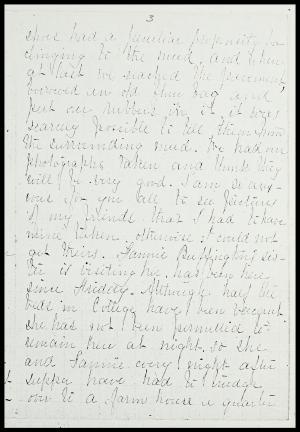 3
shoes had a peculiar propensity for
clinging to the mud, and when
at last we reached the pavement,
borrowed an old flour bag and
put our rubbers in it it was
scarcely possible to tell them from
the surrounding mud. We had our
photographs taken and think they
will be very good. I am so anx-
ious for you all to see pictures
of my friends that I had to have
mine taken, otherwise I could not
get theirs. Fannie Buffington's sis-
ter is visiting her, has been here
since Friday. Although half the
beds in College have been vacant
she has not been permitted to
remain here at night, so she
and Fannie every night after
supper have had to trudge
over to a farm house a quarter